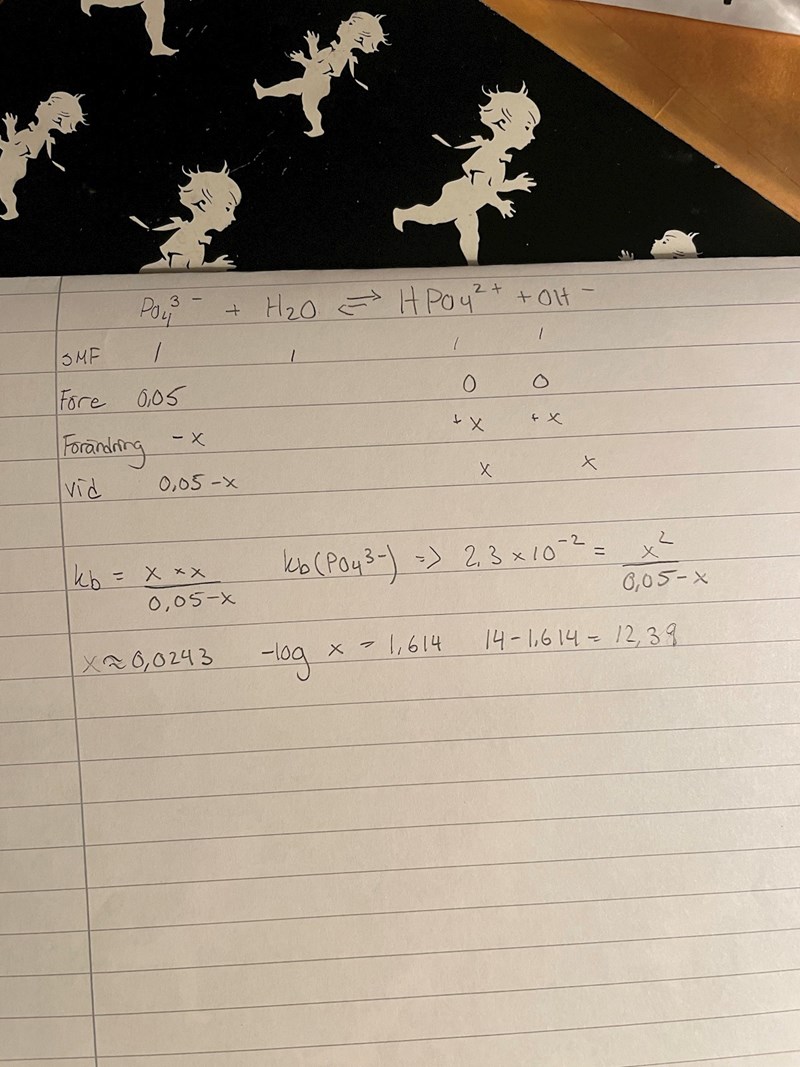 PO₄³⁻ + H₂O ⇌ HPO₄²⁺ + OH⁻
SMF 1 1 1 1
Före 0,05 0 0
Förändring -x +x +x
Vid 0,05-x x x
kb = x × x / 0,05-x kb(PO₄³⁻) => 2,3 × 10⁻² = x² / 0,05-x
x ≈ 0,0243 -log x = 1,614 14-1,614 = 12,39